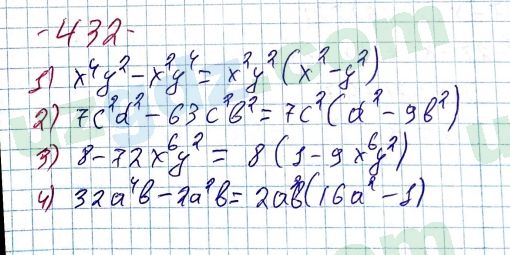 -432-
1) x⁴y² - x²y⁴ = x²y²(x² - y²)
2) 7c²d² - 63c²b² = 7c²(d² - 9b²)
3) 8 - 72x⁶y² = 8(1 - 9x⁶y²)
4) 32a⁴b - 2a²b = 2a²b(16a² - 1)